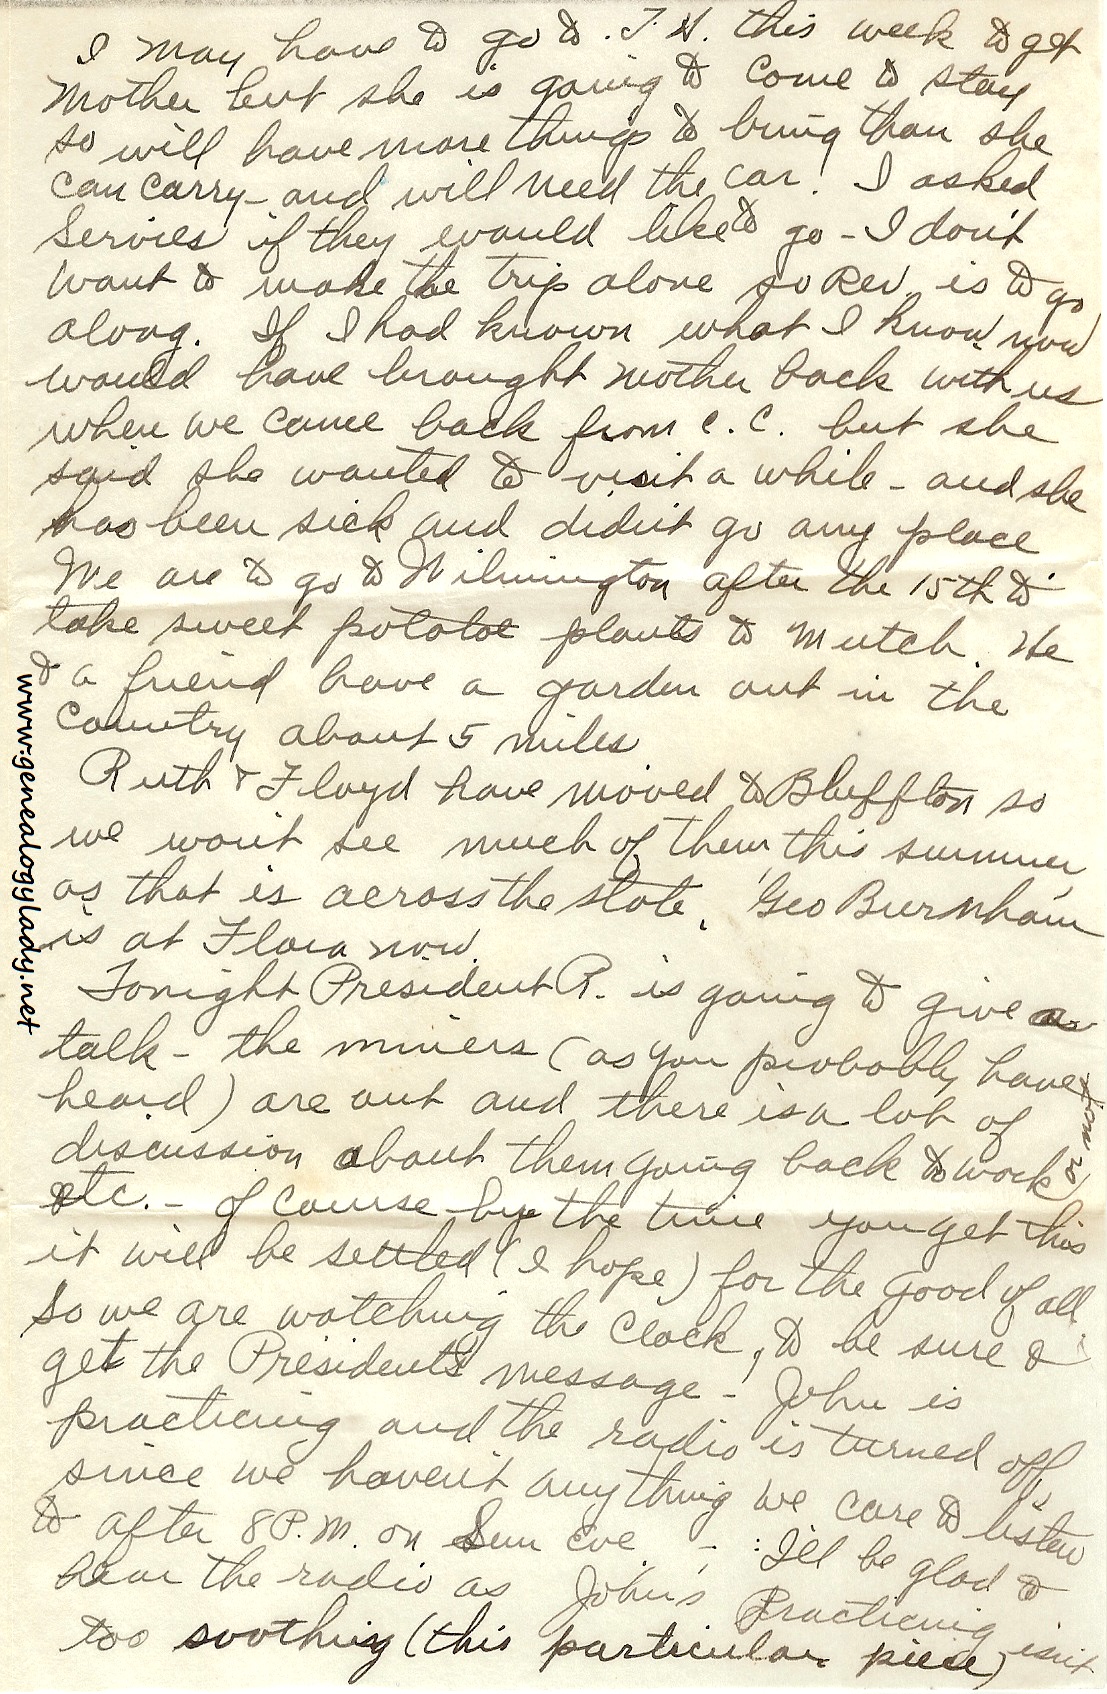 I may have to go to T.H. this week to get
Mother but she is going to come to stay
so will have more things to bring than she
can carry - and will need the car! I asked
Servies if they would like to go - I don't
want to make the trip alone so Rev. is to go
along. If I had known what I know now
would have brought Mother back with us
when we came back from C.C. but she
said she wanted to visit a while - and she
has been sick and didn't go any place
We are to go to Wilmington after the 15th to
take sweet potatoe plants to Mutch. He
& a friend have a garden out in the
country about 5 miles
Ruth & Floyd have moved to Bluffton so
we won't see much of them this summer
as that is across the state. Geo Burnham
is at Flora now.
Tonight President R. is going to give a
talk - the miners (as you probably have
heard) are out and there is a lot of
discussion about them going back to work
etc. - of course by the time you get this
it will be settled (I hope) for the good of all
So we are watching the clock, to be sure &
get the President's message - John is
practicing and the radio is turned off,
since we haven't anything we care to listen
to after 8 P.M. on Sun eve - I'll be glad to
hear the radio as John's Practicing isn't
too soothing (this particular piece)
www.genealogylady.net